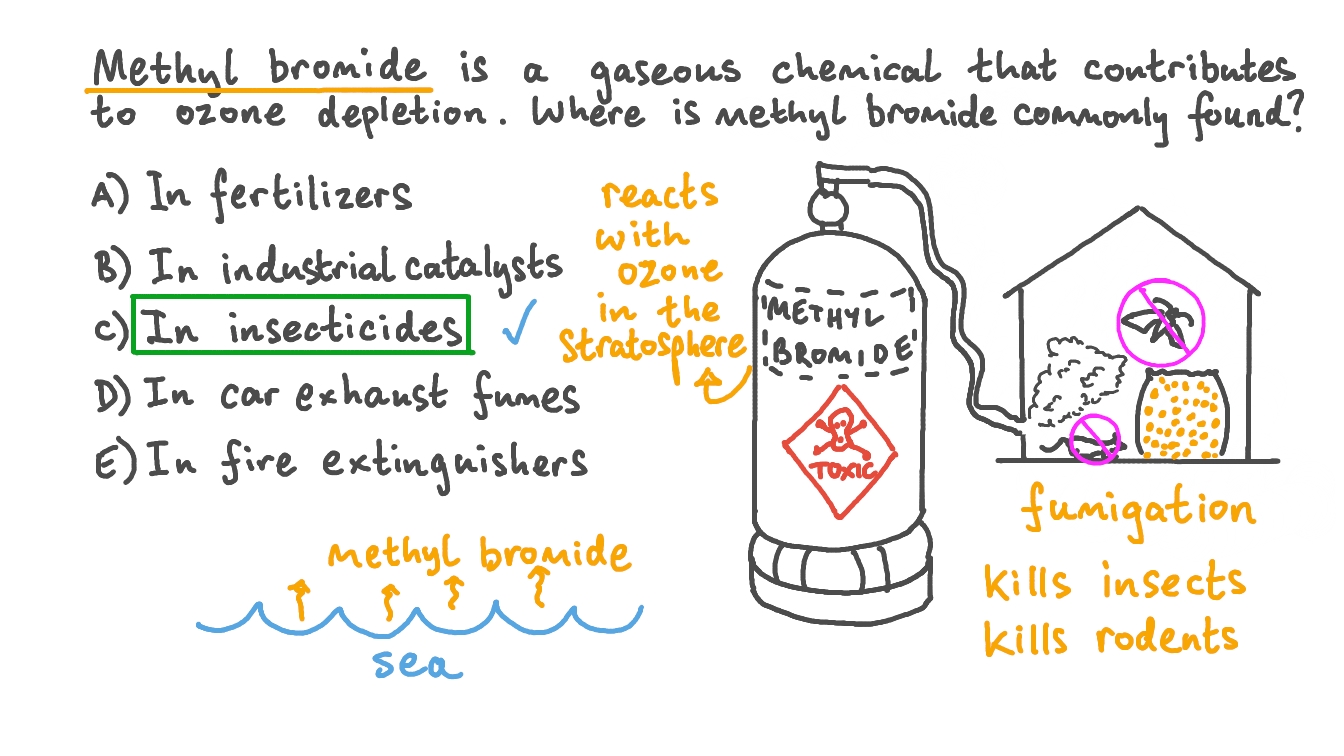 Methyl bromide is a gaseous chemical that contributes
to ozone depletion. Where is methyl bromide commonly found?
A) In fertilizers
B) In industrial catalysts
C) In insecticides
D) In car exhaust fumes
E) In fire extinguishers
reacts
with
ozone
in the
Stratosphere
METHYL
BROMIDE
TOXIC
fumigation
kills insects
kills rodents
methyl bromide
sea